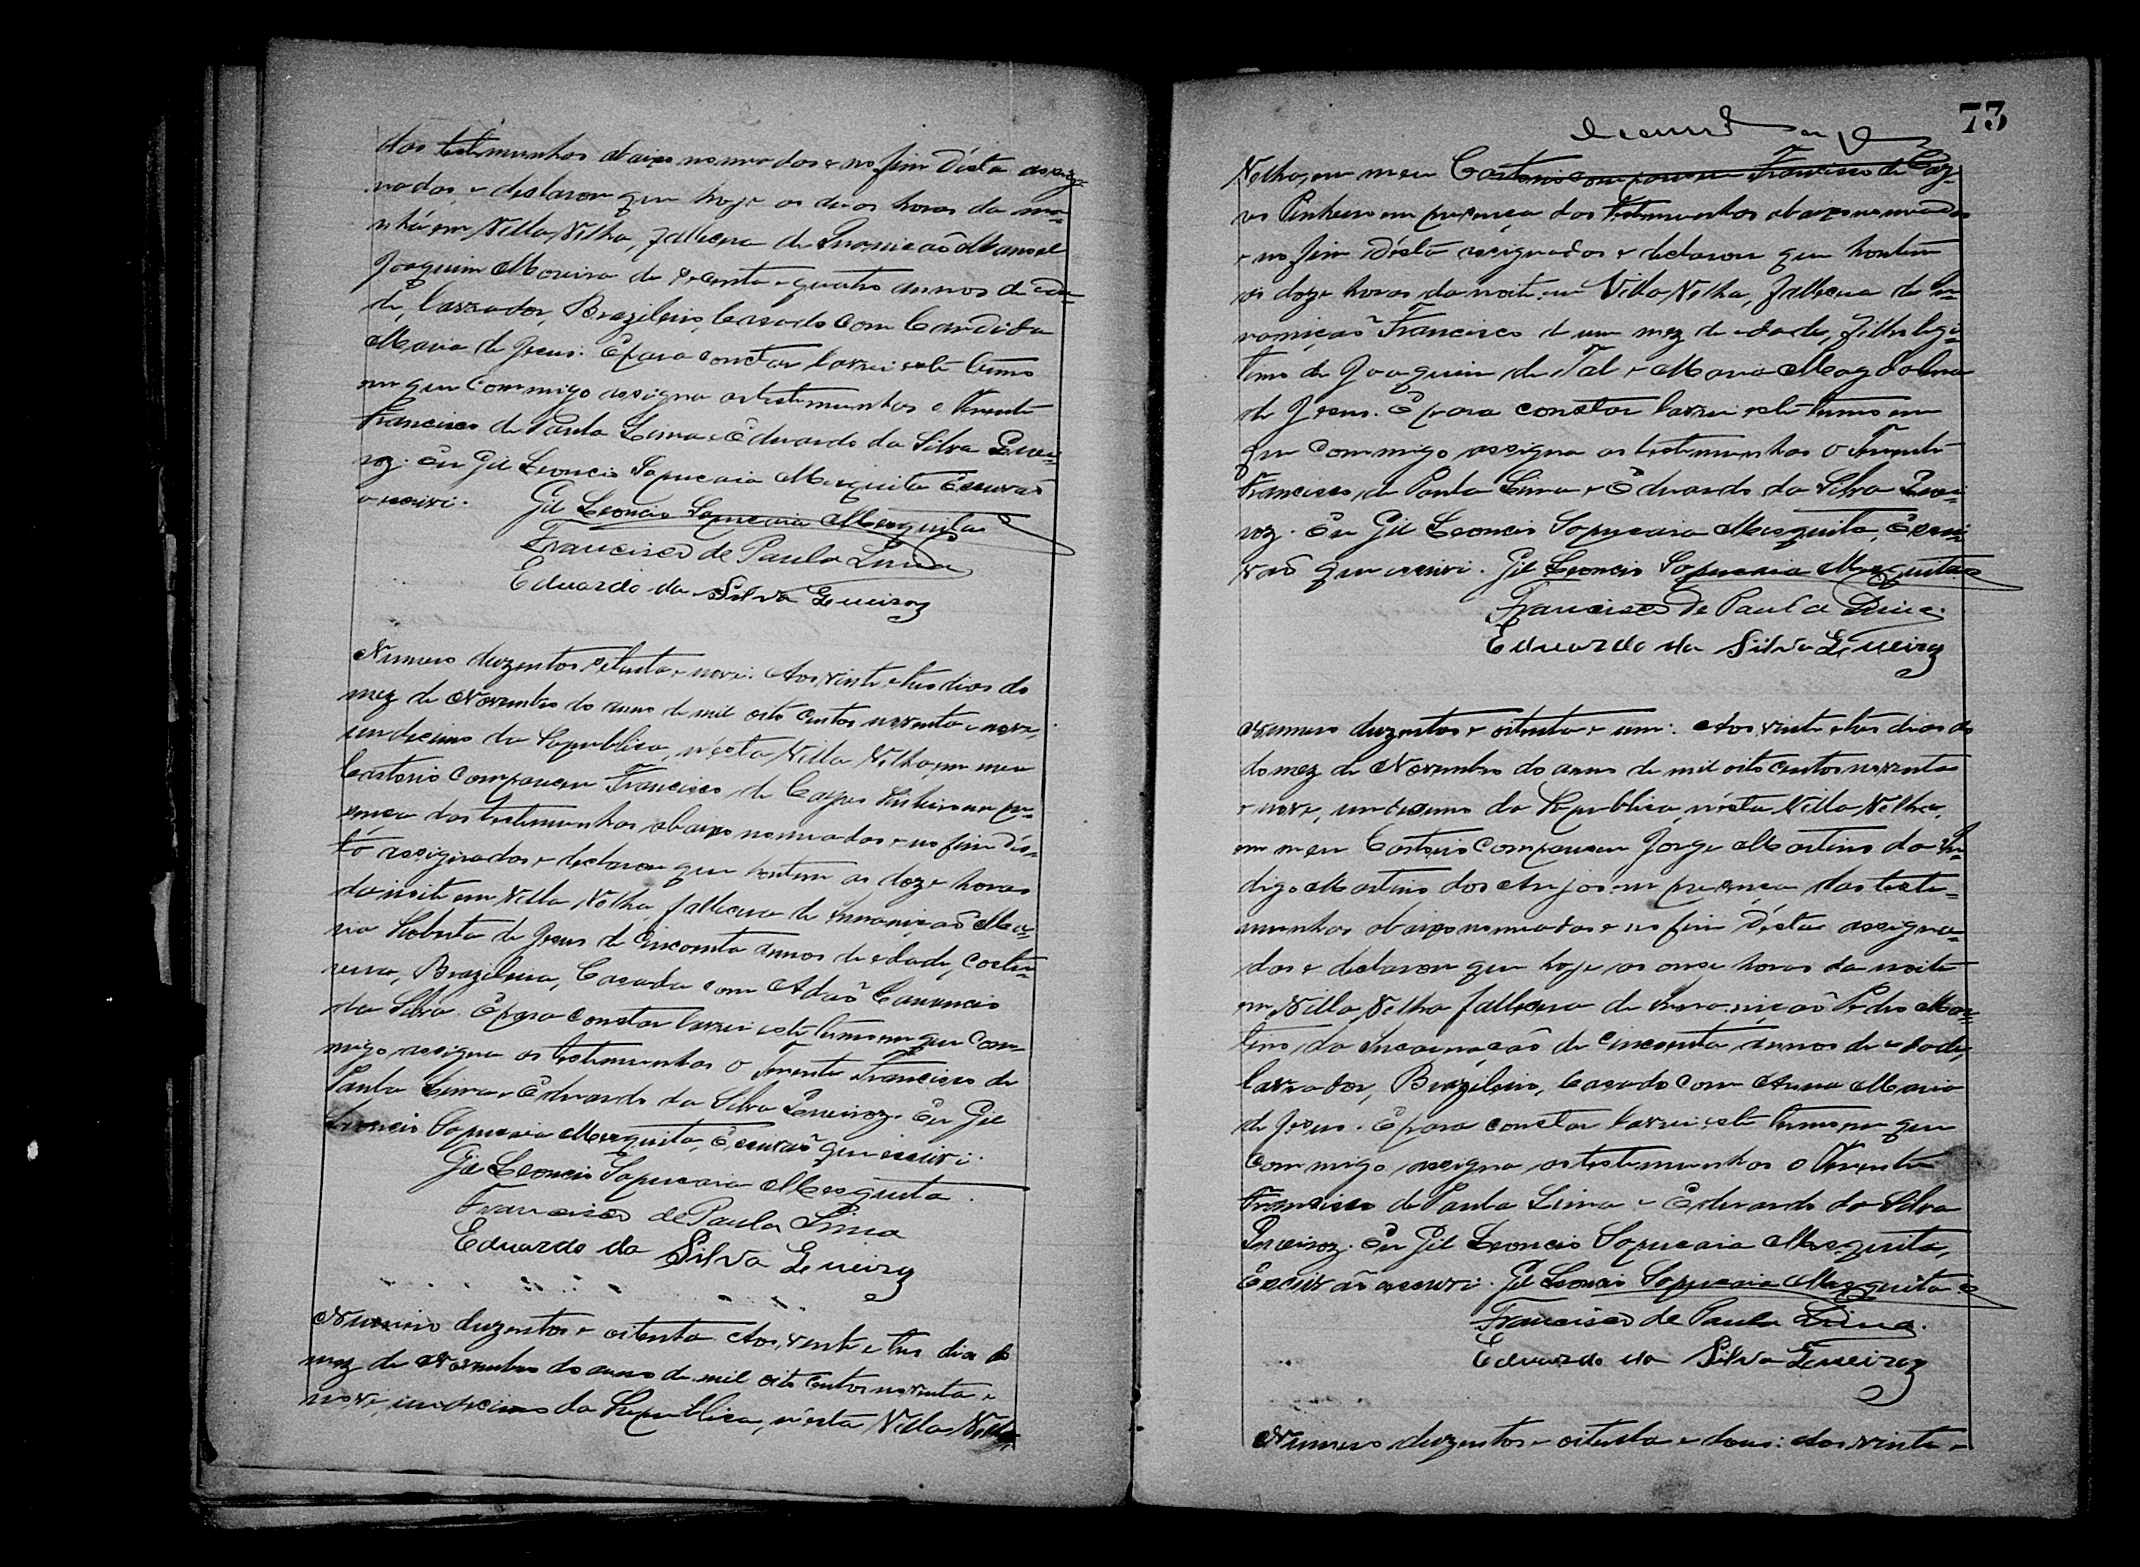 das testemunhas abaixo nomeadas e no fim désta assig-
nadas, e declarou que hoje as duas horas da ma-
nhã em Villa Velha, falleceu de Innanição Manoel
Joaquim Moreira de secenta e quatro annos de eda-
de, lavrador, Brazileiro, Casado com Candida
Maria de Jesus. E para constar lavrei este termo
em que commigo assigna as testemunhas o Tenente
Francisco de Paula Lima e Eduardo da Silva Quei-
roz. Eu Gil Leoncio Sapucaia Mesquita Escrivão
o escrevi. Gil Leoncio Sapucaia Mesquita
Francisco de Paula Lima
Eduardo da Silva Queiroz
Numero duzentos setenta e nove. Aos vinte e tres dias do
mez de Novembro do anno de mil oito centos noventa e nove,
undecimo da Republica, n'ésta Villa Velha, em meu
Cartorio compareceu Francisco de Pinheiro em pre-
sença das testemunhas abaixo nomeadas e no fim dés-
ta assignadas e declarou que hontem as doze horas
da noite em Villa Velha, falleceu de Innanição Ma-
ria Roberta de Jesus de Cincoenta annos de edade, costu-
reira, Brazileira, Casada com Adão
da Silva. E para constar lavrei este termo em que com-
migo assigna as testemunhas o Tenente Francisco de
Paula Lima e Eduardo da Silva Queiroz. Eu Gil
Leoncio Sapucaia Mesquita, Escrivão que escrevi.
Gil Leoncio Sapucaia Mesquita.
Francisco de Paula Lima
Eduardo da Silva Queiroz
Numero duzentos e oitenta. Aos vinte e tres dias do
mez de Novembro do anno de mil oito centos noventa e
nove, undecimo da Republica, n'ésta Villa Velha,
73
Velha, em meu Cartorio compareceu Francisco de
Pinheiro em presença das testemunhas abaixo nomeadas
e no fim désta assignadas e declarou que hontem
as doze horas da noite em Villa Velha, falleceu de In-
nanição Francisco de um mez de edade, filho legi-
timo de Joaquim de Tal e Maria Magdalena
de Jesus. E para constar lavrei este termo em
que commigo assigna as testemunhas o Tenente
Francisco de Paula Lima e Eduardo da Silva Quei-
roz. Eu Gil Leoncio Sapucaia Mesquita, Escri-
vão que escrevi. Gil Leoncio Sapucaia Mesquita
Francisco de Paula Lima.
Eduardo da Silva Queiroz
Numero duzentos e oitenta e um. Aos vinte e tres dias do
do mez de Novembro do anno de mil oito centos noventa
e nove, undecimo da Republica, n'ésta Villa Velha,
em meu Cartorio compareceu Jorge Martins da In-
digo Martins dos Anjos em presença das teste-
munhas abaixo nomeadas e no fim désta assigna-
das e declarou que hoje as onse horas da noite
em Villa Velha falleceu de Innanição Pedro Mar-
tins da Incarnação de Cincoenta annos de edade,
lavrador, Brazileiro, Casado com Anna Maria
de Jesus. E para constar lavrei este termo em que
commigo assigna as testemunhas o Tenente
Francisco de Paula Lima e Eduardo da Silva
Queiroz. Eu Gil Leoncio Sapucaia Mesquita,
Escrivão o escrevi. Gil Leoncio Sapucaia Mesquita
Francisco de Paula Lima.
Eduardo da Silva Queiroz
Numero duzentos e oitenta e dous: Aos vinte e